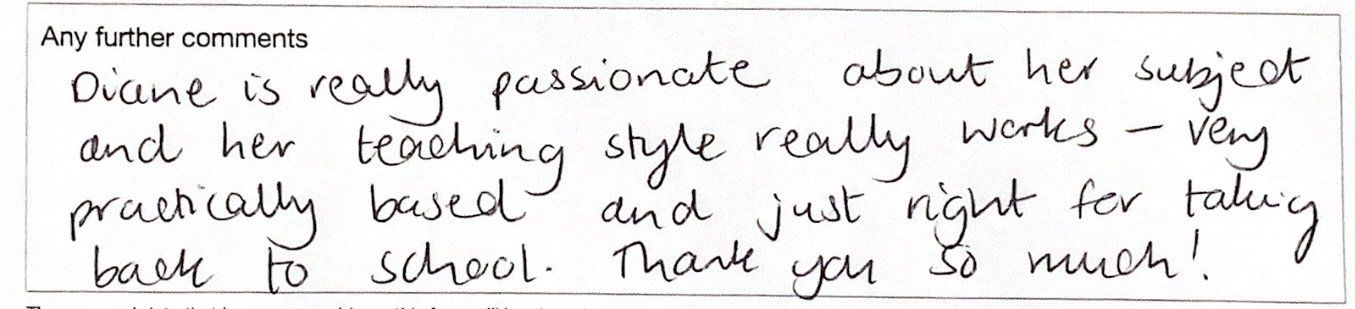 Any further comments
Diane is really passionate about her subject
and her teaching style really works – very
practically based and just right for taking
back to school. Thank you so much!